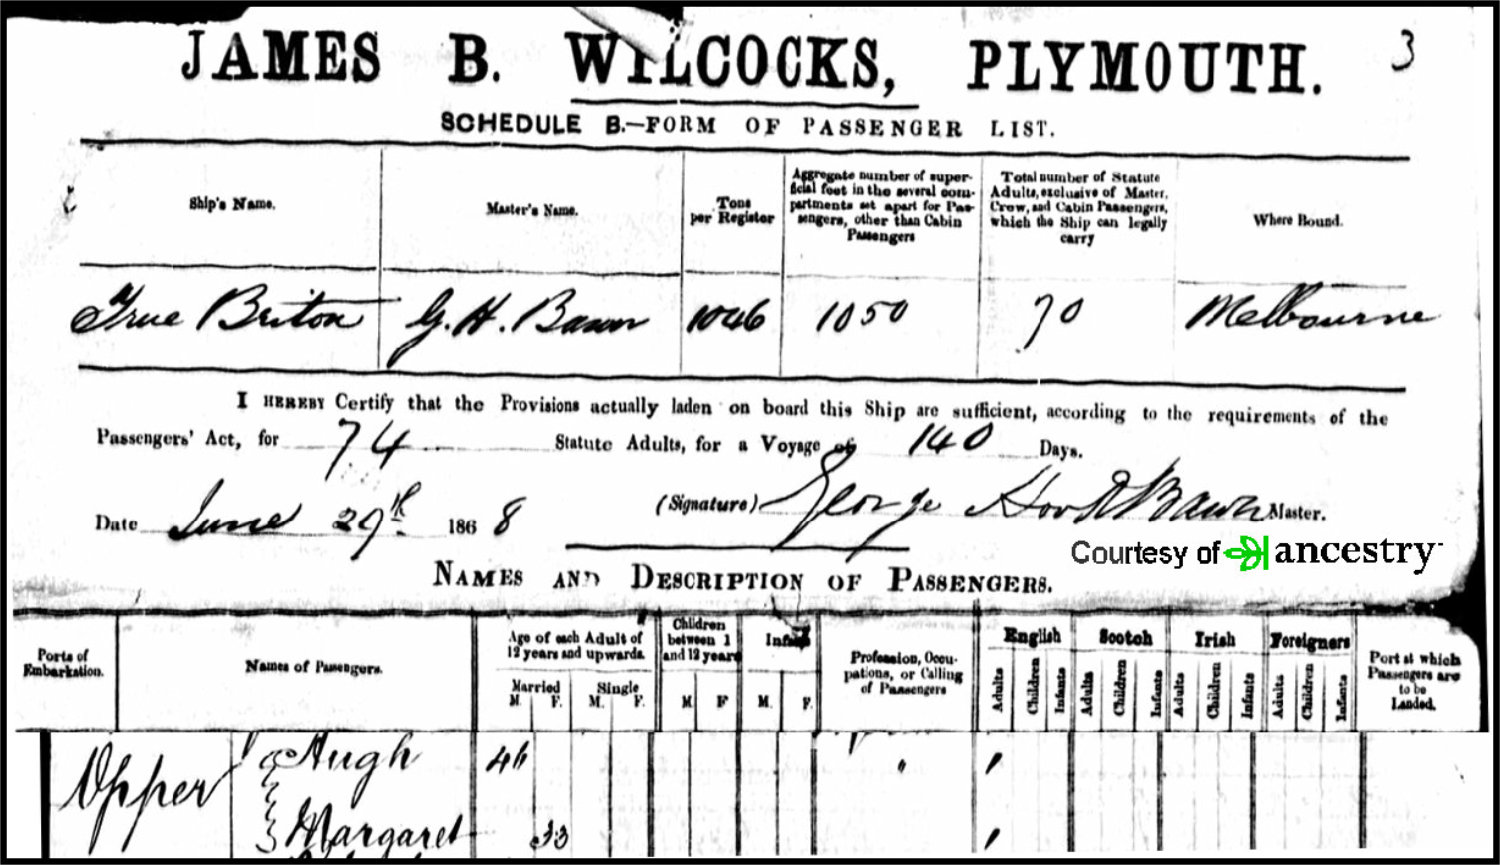 3
JAMES B. WILCOCKS, PLYMOUTH.
SCHEDULE B.—FORM OF PASSENGER LIST.
Ship's Name.
Master's Name.
Tons
per Register
Aggregate number of super-
ficial feet in the several com-
partments set apart for Pas-
sengers, other than Cabin
Passengers
Total number of Statute
Adults, exclusive of Master,
Crew, and Cabin Passengers,
which the Ship can legally
carry
Where Bound.
True Briton G. H. Bawn 1046 1050 70 Melbourne
I HEREBY Certify that the Provisions actually laden on board this Ship are sufficient, according to the requirements of the
Passengers' Act, for 74 Statute Adults, for a Voyage of 140 Days.
Date June 29th 1868 (Signature) George Bawn Master.
Courtesy of ancestry
NAMES AND DESCRIPTION OF PASSENGERS.
Ports of
Embarkation.
Names of Passengers.
Age of each Adult of
12 years and upwards.
Married Single
M. F. M. F.
Children
between 1
and 12 years
M F
Infants
M. F.
Profession, Occu-
pations, or Calling
of Passengers
English Scotch Irish Foreigners
Adults Children Infants Adults Children Infants Adults Children Infants Adults Children Infants
Port at which
Passengers are
to be
Landed.
Upper Hugh 46 " 1
Margaret 33 1